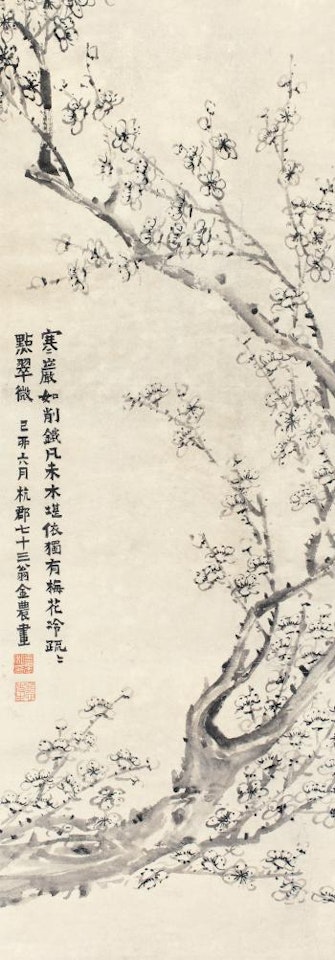 寒巖如削鐵凡未木堪依獨有梅花冷疏〻
點翠微 己卯六月杭郡七十三翁金農畫